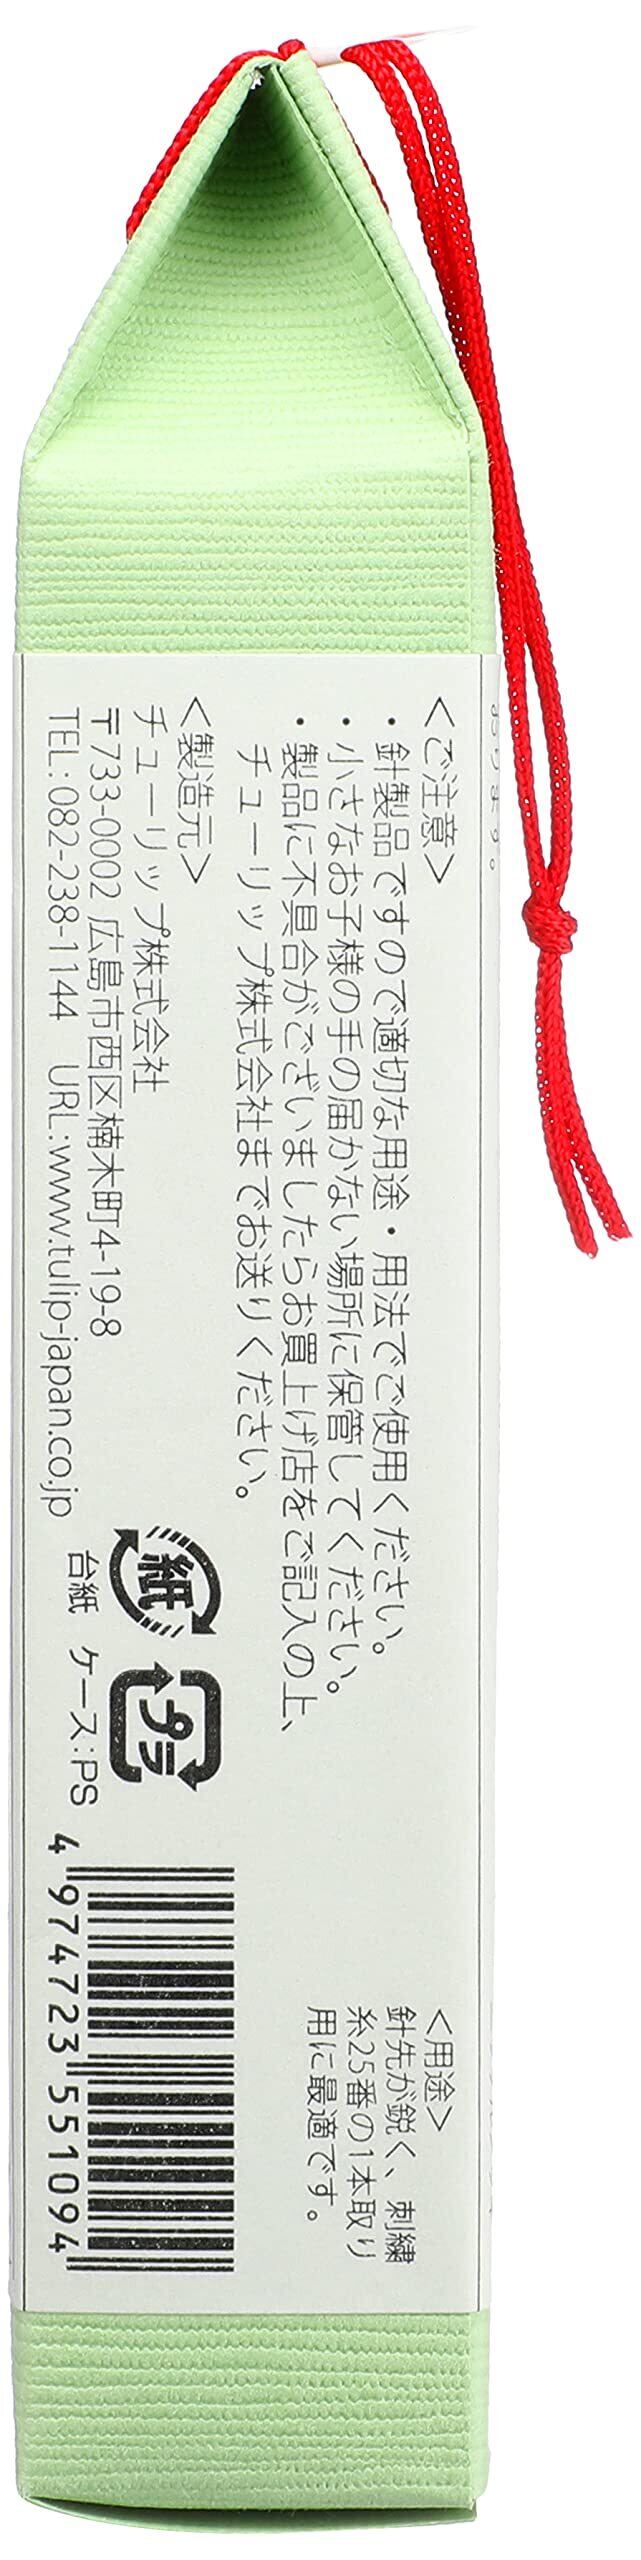 おります。
<ご注意>
・針製品ですので適切な用途・用法でご使用ください。
・小さなお子様の手の届かない場所に保管してください。
・製品に不具合がございましたらお買上げ店をご記入の上、
チューリップ株式会社までお送りください。
<製造元>
チューリップ株式会社
〒733-0002 広島市西区楠木町4-19-8
TEL:082-238-1144 URL:www.tulip-japan.co.jp
紙
プラ
台紙 ケース:PS
<用途>
針先が鋭く、刺繍
糸25番の1本取り
用に最適です。
4 974723 551094